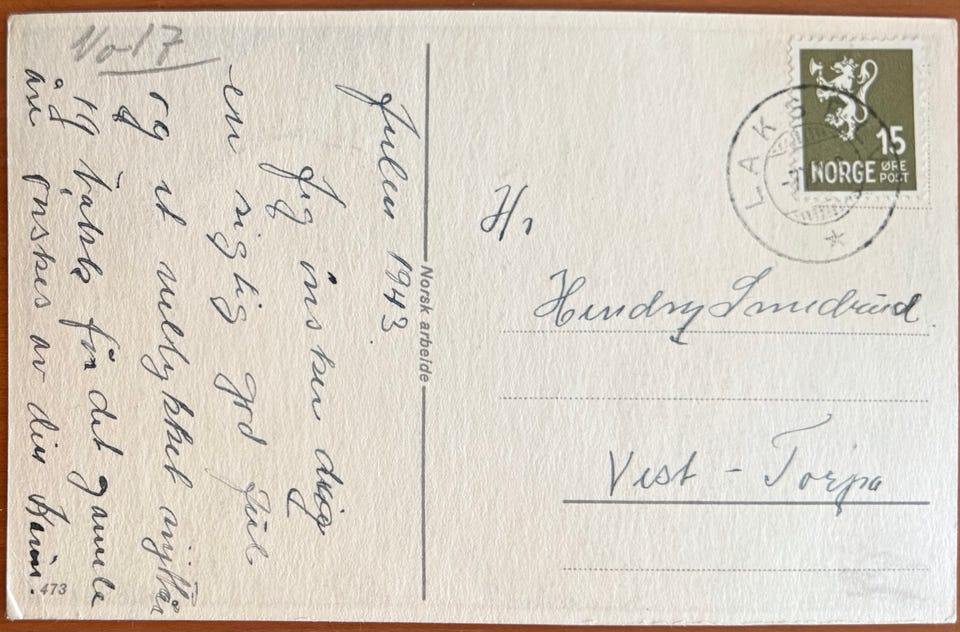 No 17
Julen 1943.
Jeg önsker dig
en rigtig god Jul
og et vellykket nyttår
og takk for det gamle
år önskes av din
473
Norsk arbeide
15
NORGE ØRE
POST
LAKS
Hr
Hendry Smedsrud.
Vest - Torpa